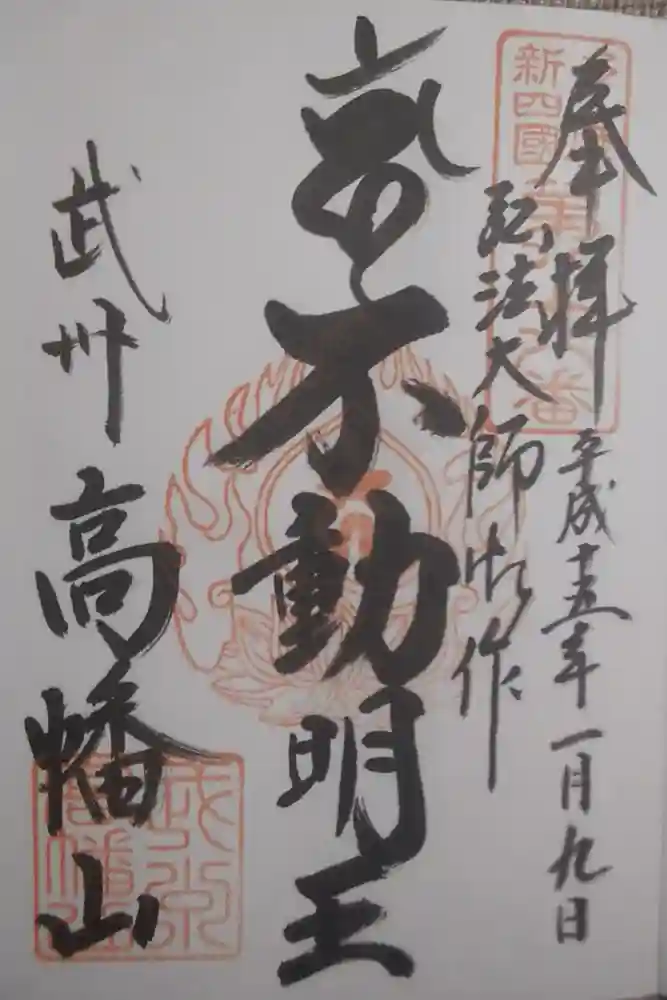 奉拝 平成十五年一月九日
弘法大師御作
不動明王
武州 高幡山
新四國
番